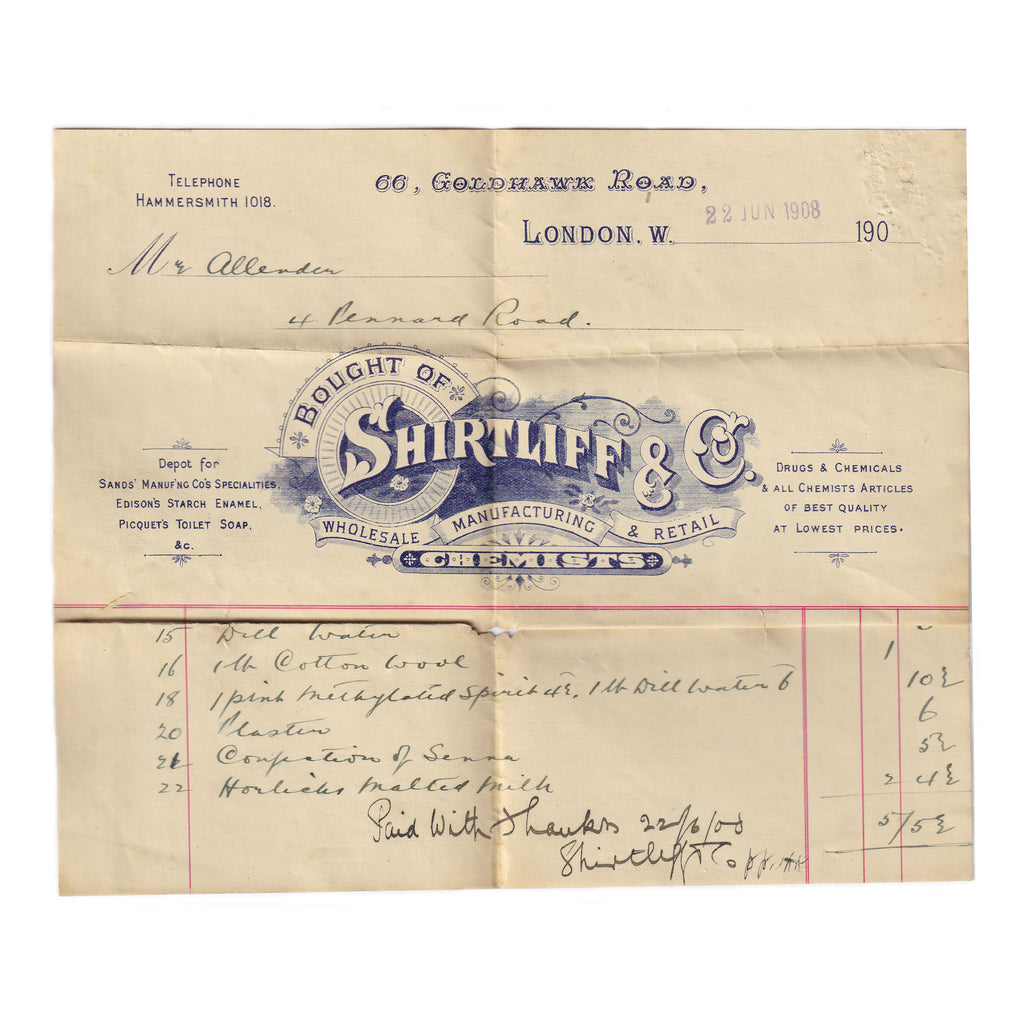 TELEPHONE
HAMMERSMITH 1018.
66, GOLDHAWK ROAD,
22 JUN 1908
LONDON. W. 190
Mr Allender
4 Pennard Road.
BOUGHT OF
SHIRTLIFF & Co.
WHOLESALE MANUFACTURING & RETAIL
CHEMISTS
Depot for
SANDS' MANUF'NG CO'S SPECIALITIES,
EDISON'S STARCH ENAMEL,
PICQUET'S TOILET SOAP,
&c.
DRUGS & CHEMICALS
& ALL CHEMISTS ARTICLES
OF BEST QUALITY
AT LOWEST PRICES.
15 Dill Water
16 1 lb Cotton Wool 1
18 1 pint Methylated Spirit 4½. 1 lb Dill Water 6 10½
20 Plaster 6
21 Confection of Senna 5½
22 Horlicks Malted Milk 2 4½
Paid With Thanks 22/6/08 5/5½
Shirtliff & Co